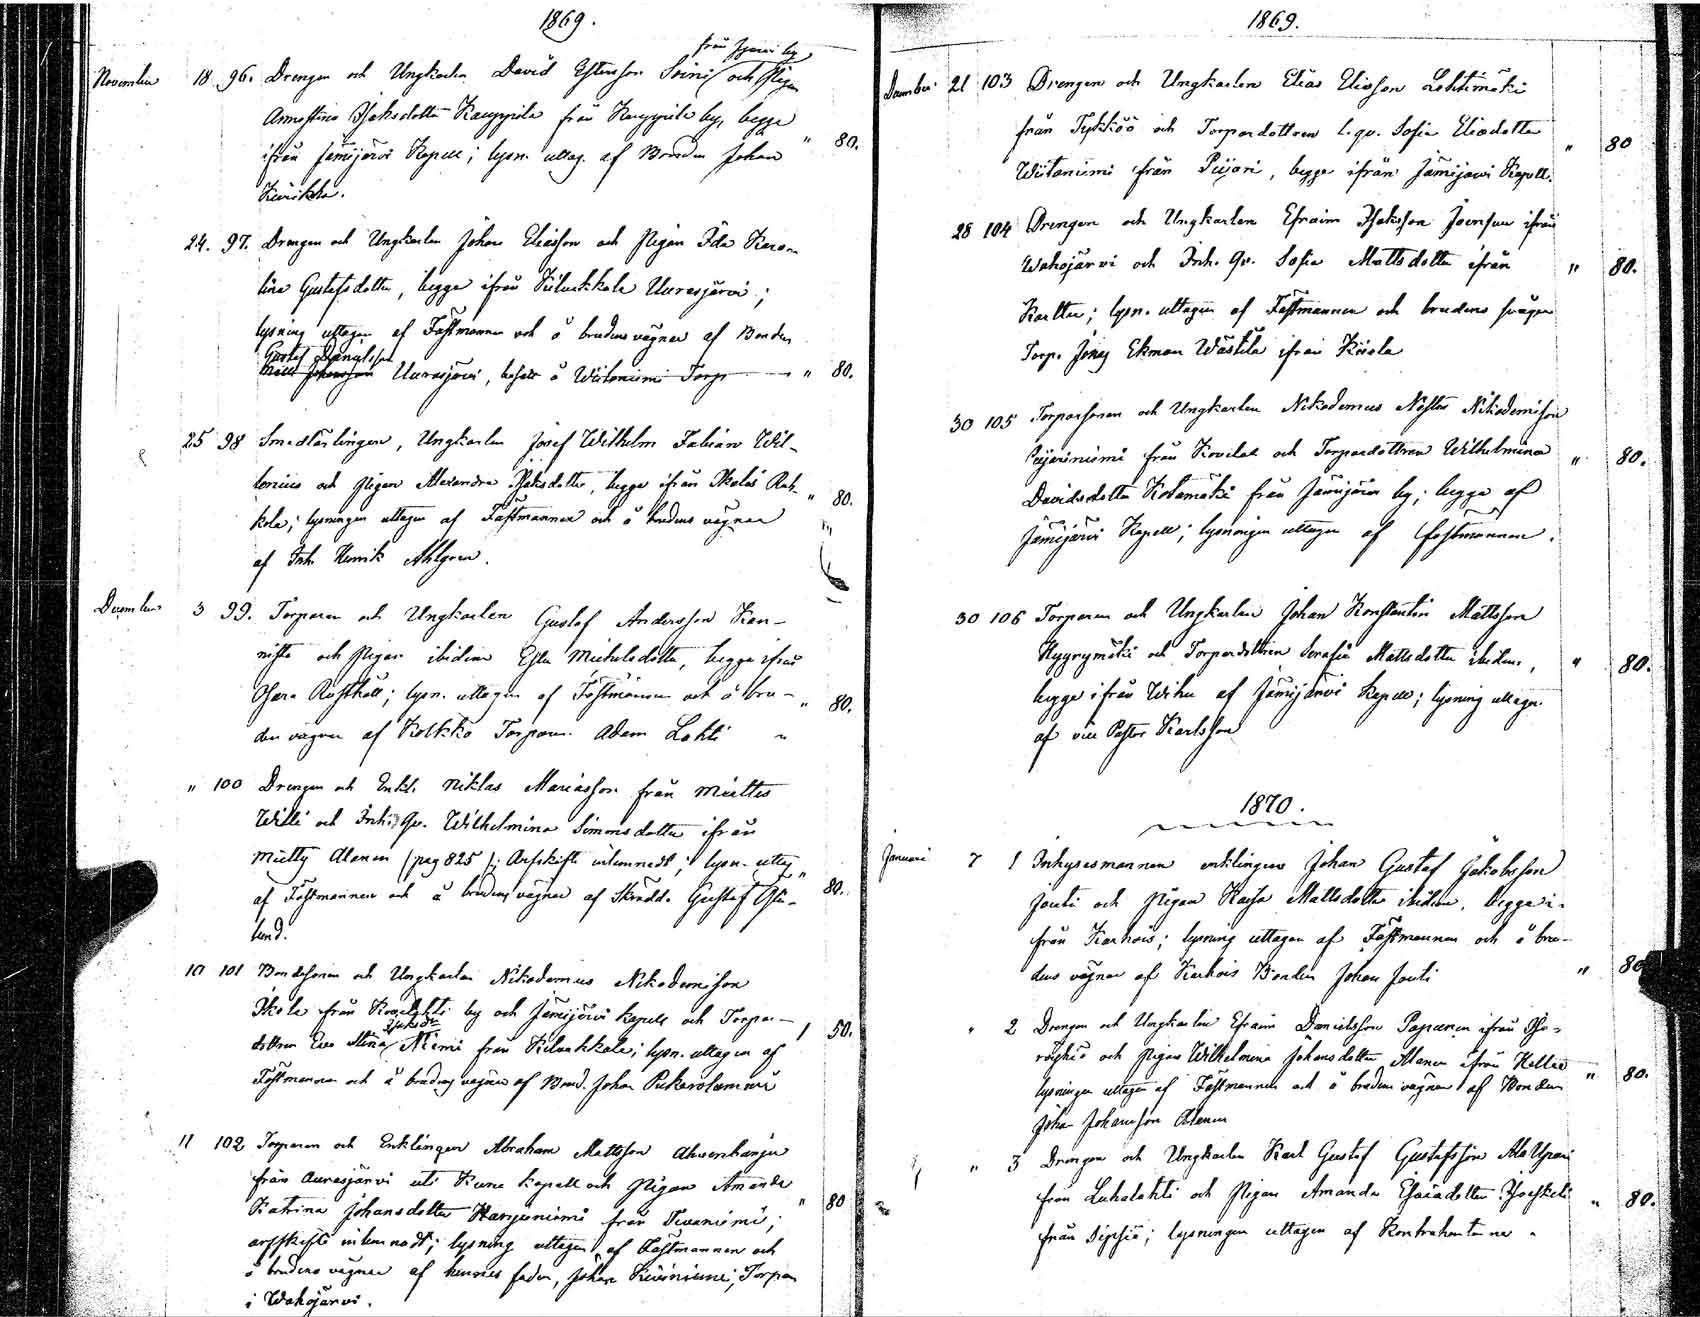 1869.
från Jyrri by
November 18 96. Drengen och Ungkarlen David Efternson Soini och Pigan
Annastina Isaksdotter Kauppila från Kauppila by, begge
ifrån Jämijärvi Kapell; lysn. uttag. af Bonden Johan " 80.
Kivrikko.
24. 97. Drengen och Ungkarlen Johan Eliasson och Pigan Ida Karo-
lina Gustafsdotter, begge ifrån Kiluakkala Uurasjärvi;
lysning uttagen af Fästmannen och å brudens vägnar af Bonden
Gustaf Danielsson
Uurasjärvi, å Wiitaniemi Torp " 80.
25 98 Smedlärlingen, Ungkarlen Josef Wilhelm Fabian Wil-
lenius och Pigan Alexandra Isaksdotter, begge ifrån
kola; lysningen uttagen af Fästmannen och å brudens vägnar " 80.
af Inh. Henrik Ahlgren.
December 3 99. Torparen och Ungkarlen Gustaf Andersson Kan-
nisto och Pigan ibidem Ester Michelsdotter, begge ifrån
Rusthåll; lysn. uttagen af Fästmannen och å bru- " 80.
den vägnar af Kolkko Torparen Adam Lahti "
" 100 Drengen och Enkl. Niklas Mariasson från Miettes
Willi och Inh. Qv. Wilhelmina Simonsdotter ifrån
Mietty Alanen (pag 825); Arfskifte inlemnadt; lysn. uttag "
af Fästmannen och å brudens vägnar af Skrädd. Gustaf Öster- 80.
lund.
10 101 Bondesonen och Ungkarlen Nikodemus Nikodemison
Skola från by och Jämijärvi Kapell och Torpar-
Isaksdr
dottren Eva Stina Niemi från Kiluakkala; lysn. uttagen af 1 50.
Fästmannen och å brudens vägnar af Bond. Johan
11 102 Torparen och Enklingen Abraham Mattsson Ahvenharju
från Aurasjärvi uti Kuru Kapell och Pigan Amanda
Katrina Johansdotter Harjuniemi från Tevaniemi; " 80
arfskifte inlemnadt; lysning uttagen af Fästmannen och
å brudens vägnar af hennes fader, Johan Kiviniemi, Torpare
i Wahojärvi.
1869.
December 21 103 Drengen och Ungkarlen Elias Eliasson Lehtimäki
från Tykköö och Torpardottren l. qv. Sofia Eliedotter " 80
Wiitaniemi från Peijari, begge ifrån Jämijärvi Kapell.
28 104 Drengen och Ungkarlen Efraim Isaksson Joensuu ifrån
Wahojärvi och Inh. Qv. Sofia Mattsdotter ifrån " 80.
Karttu; lysn. uttagen af Fästmannen och brudens svåger
Torp. Jonas Ekman Wästilä ifrån Kisola
30 105 Torparsonen och Ungkarlen Nikodemus Nestor Nikodemison
Peijariniemi från Kovilat och Torpardottren Wilhelmina " 80.
Davidsdotter Kotamäki från Jämijärvi by; begge af
Jämijärvi Kapell; lysningen uttagen af fästmannen.
30 106 Torparen och Ungkarlen Johan Konstantin Mattsson
Myyrymäki och Torpardottren Serafia Mattsdotter ibidem, " 80.
begge ifrån Wihu af Jämijärvi Kapell; lysning uttagn.
af vice Pastor Karlsson
1870.
Januari 7 1 Inhysesmannen enklingen Johan Gustaf Jakobsson
Jouti och Pigan Kaisa Mattsdotter ibidem, begge i-
från Karhois; lysning uttagen af Fästmannen och å bru-
dens vägnar af Karhois Bonden Johan Jouti " 80
" 2 Drengen och Ungkarlen Efraim Danielsson Papanen ifrån Oho-
och Pigan Wilhelmina Johansdotter Alanen ifrån Heller
lysningen uttagen af Fästmannen och å brudens vägnar af Bonden " 80.
Johan Johansson Alanen
" 3 Drengen och Ungkarlen Karl Gustaf Gustafsson Ala Upari
från Luhalahti och Pigan Amanda Esaiadotter " 80.
från Sipsiö; lysningen uttagen af Kontrahenterne.